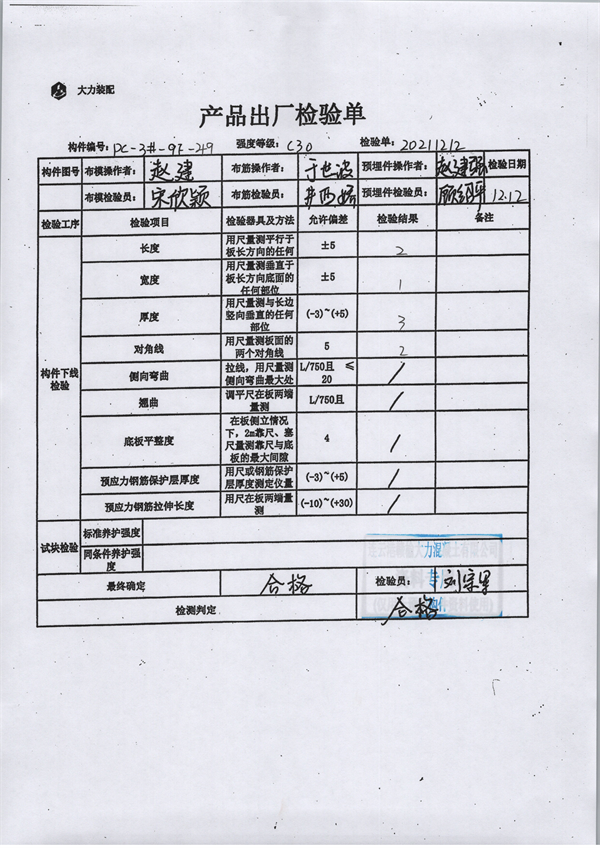 大力装配
产品出厂检验单
构件编号: PC-3#-9F-249 强度等级: C30 检验单: 20211212
构件图号 布模操作者: 赵建 布筋操作者: 于世波 预埋件操作者: 赵建强 检验日期
布模检验员: 宋欣颖 布筋检验员: 预埋件检验员: 12.12
检验工序 检验项目 检验器具及方法 允许偏差 检验结果 备注
构件下线检验
长度 用尺量测平行于板长方向的任何 ±5 2
宽度 用尺量测垂直于板长方向底面的任何部位 ±5 1
厚度 用尺量测与长边竖向垂直的任何部位 (-3)~(+5) 3
对角线 用尺量测板面的两个对角线 5 2
侧向弯曲 拉线,用尺量测侧向弯曲最大处 L/750且 ≤20 /
翘曲 调平尺在板两端量测 L/750且 /
底板平整度 在板侧立情况下,2m靠尺、塞尺量测靠尺与底板的最大间隙 4 /
预应力钢筋保护层厚度 用尺或钢筋保护层厚度测定仪量 (-3)~(+5) /
预应力钢筋拉伸长度 用尺在板两端量测 (-10)~(+30) /
试块检验 标准养护强度
同条件养护强度
最终确定 合格 检验员:
检测判定 合格